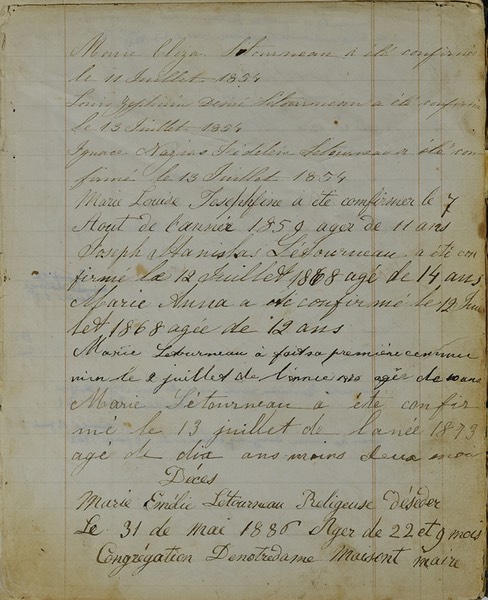 Marie Eliza Letourneau a été confirmée
le 11 Juillet 1854
Louis Zephirin Létourneau a été confirm
le 13 Juillet 1854
Ignace Nazius Létourneau a été con
firmé le 13 Juillet 1854
Marie Louise Josephine a été confirmer le 7
Aout de l'anneé 1859 ager de 11 ans
Joseph Stanislas Létourneau a été con
firmé le 12 Juillet 1868 agé de 14 ans
Marie Anna a été confirmé le 12 Juil
let 1868 agée de 12 ans
Marie Letourneau à fait sa première commu
nion le 2 juillet de l'année ager de 10 ans
Marie Létourneau à été confir
mé le 13 juillet de lanée 1873
agé de dix ans moins deux mois
Déces
Marie Emélie Létourneau Religeuse déséder
Le 31 de mai 1886 Ager de 22 et 9 mois
Congrégation Denotredame